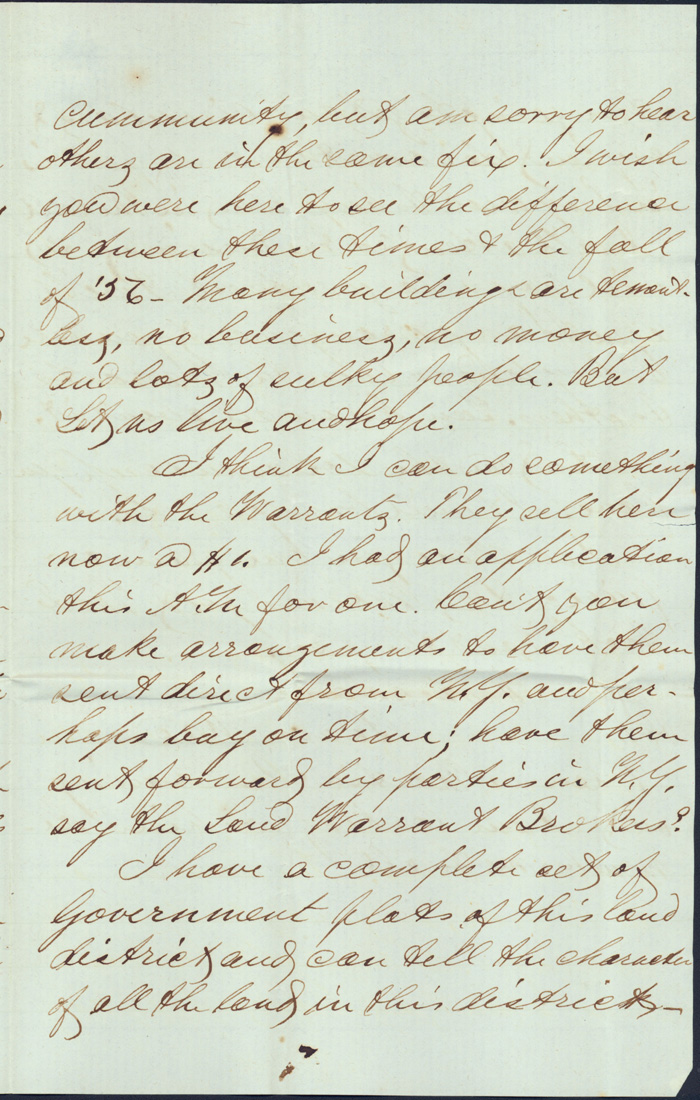 cummunity, but am sorry to hear
others are in the same fix. I wish
you were here to see the difference
between these times & the fall
of '56 - Many buildings are tenant-
less, no business, no money
and lots of sulky people. But
Let us live and hope.
I think I can do something
with the Warrants. They sell here
now @ $1. I had an application
this A.M for one. Can't you
make arrangements to have them
sent direct from N.Y. and per-
haps buy on time; have them
sent forward by parties in N.Y.
say the Land Warrant Brokers?
I have a complete set of
Government plats of this land
district and can tell the character
of all the land in this district -